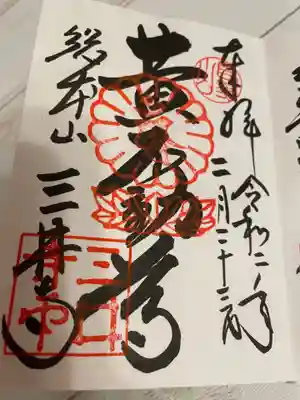 奉拝 令和二年
二月二十三日
黄不動尊
総本山 三井寺